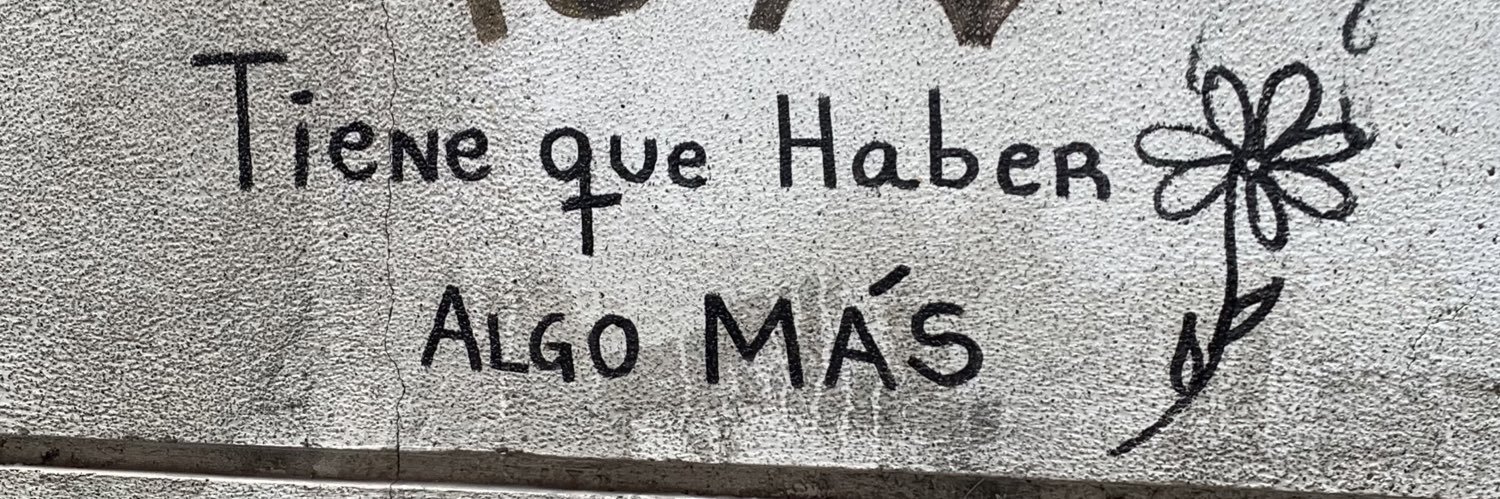 Tiene que Haber
ALGO MÁS